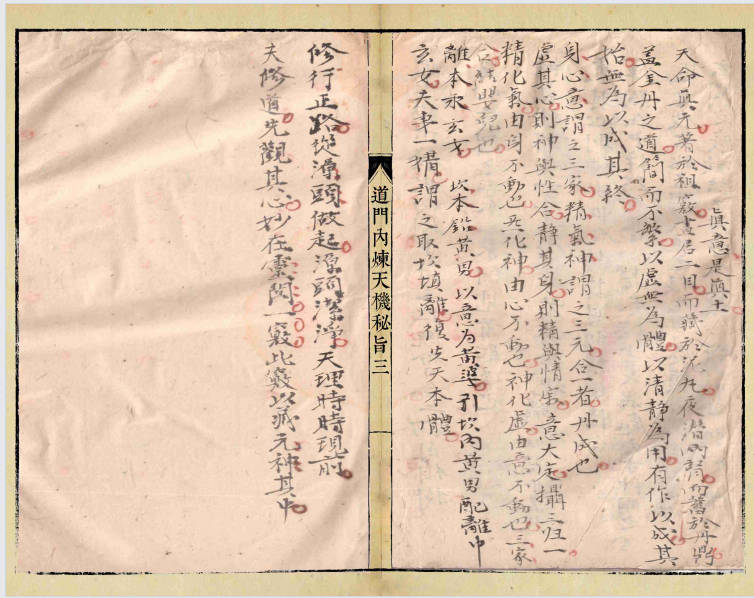 天命真元着於祖竅晝居二目而藏於泥丸夜潛兩腎而蓄於丹鼎
真意是真土
蓋金丹之道簡而不繁以虛無為體以清静為用有作以成其
始無為以成其終
身心意謂之三家精氣神謂之三元合一者丹成也
虛其心則神與性合静其身則精與情寂意大定攝三归一
精化氣由身不動也氣化神由心不動也神化虛由意不動也三家
合結嬰兒也
離本汞玄女 坎本鉛黃男 以意为黃婆引坎内黃男配離中
玄女夫妻一媾謂之取坎填離復先天本體
道門内煉天機秘旨三
修行正路從源頭做起源頭潔淨天理時時現前
夫修道先觀其心妙在靈関一竅此竅以藏元神其中